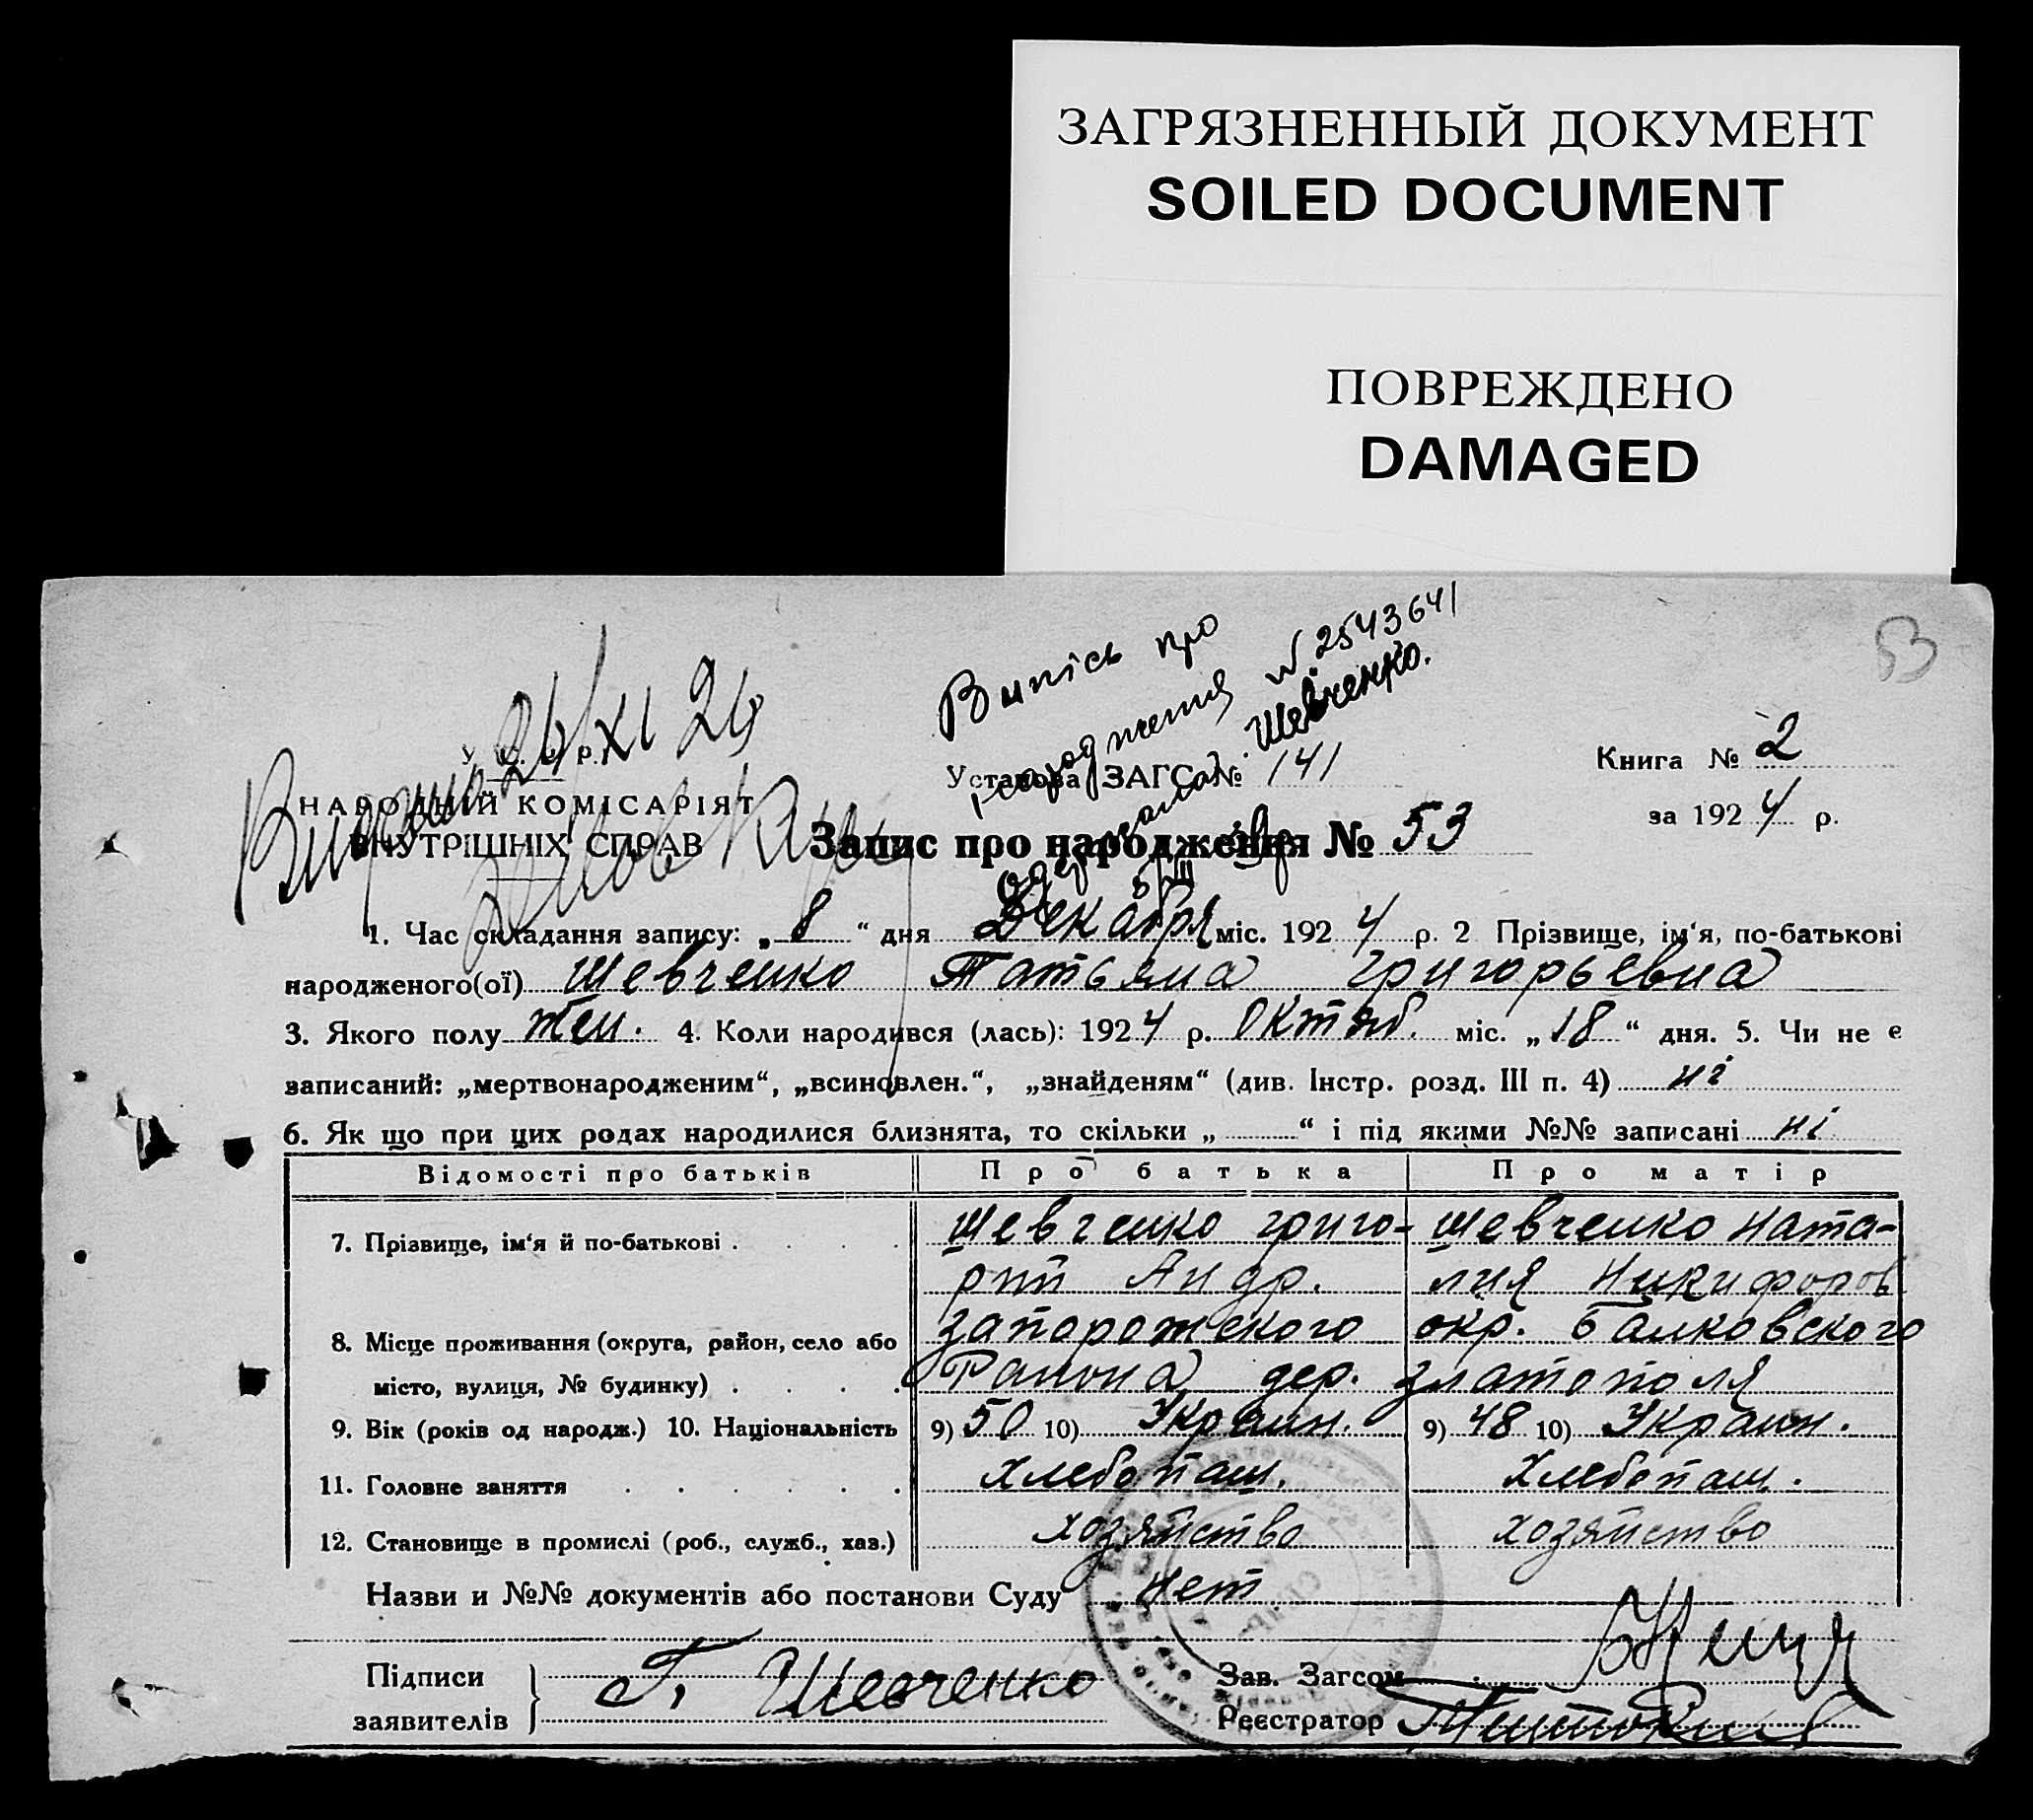 ЗАГРЯЗНЕННЫЙ ДОКУМЕНТ
SOILED DOCUMENT
ПОВРЕЖДЕНО
DAMAGED
53
Випісь про
народження № 2543641
одержала Шевченко.
У. С. Р. Р.
НАРОДНІЙ КОМІСАРІЯТ
ВНУТРІШНІХ СПРАВ
Установа ЗАГС № 141
Книга № 2
за 1924 р.
Запис про народження № 53
1. Час складання запису: „8“ дня Декабря міс. 1924 р. 2 Прізвище, ім‘я, по-батькові
народженого(ої) Шевченко Татьяна Григорьевна
3. Якого полу жен. 4. Коли народився (лась): 1924 р. Октяб. міс. „18“ дня. 5. Чи не є
записаний: „мертвонародженим“, „всиновлен.“, „знайденям“ (див. Інстр. розд. III п. 4) ні
6. Як що при цих родах народилися близнята, то скільки „ “ і під якими №№ записані ні
Відомості про батьків Про батька Про матір
7. Прізвище, ім‘я й по-батькові . . . . Шевченко Григо- Шевченко Ната-
рий Андр. лия Никифоров
8. Місце проживання (округа, район, село або Запорожского окр. Балковского
місто, вулиця, № будинку) . . . . Района дер. Златополя
9. Вік (років од народж.) 10. Національність 9) 50 10) Украин. 9) 48 10) Украин.
11. Головне заняття . . . . . . хлебопаш. хлебопаш.
12. Становище в промислі (роб., служб., хаз.) хозяйство хозяйство
Назви и №№ документів або постанови Суду нет
Підписи
заявителів
Г. Шевченко
Зав. Загсом
Реєстратор